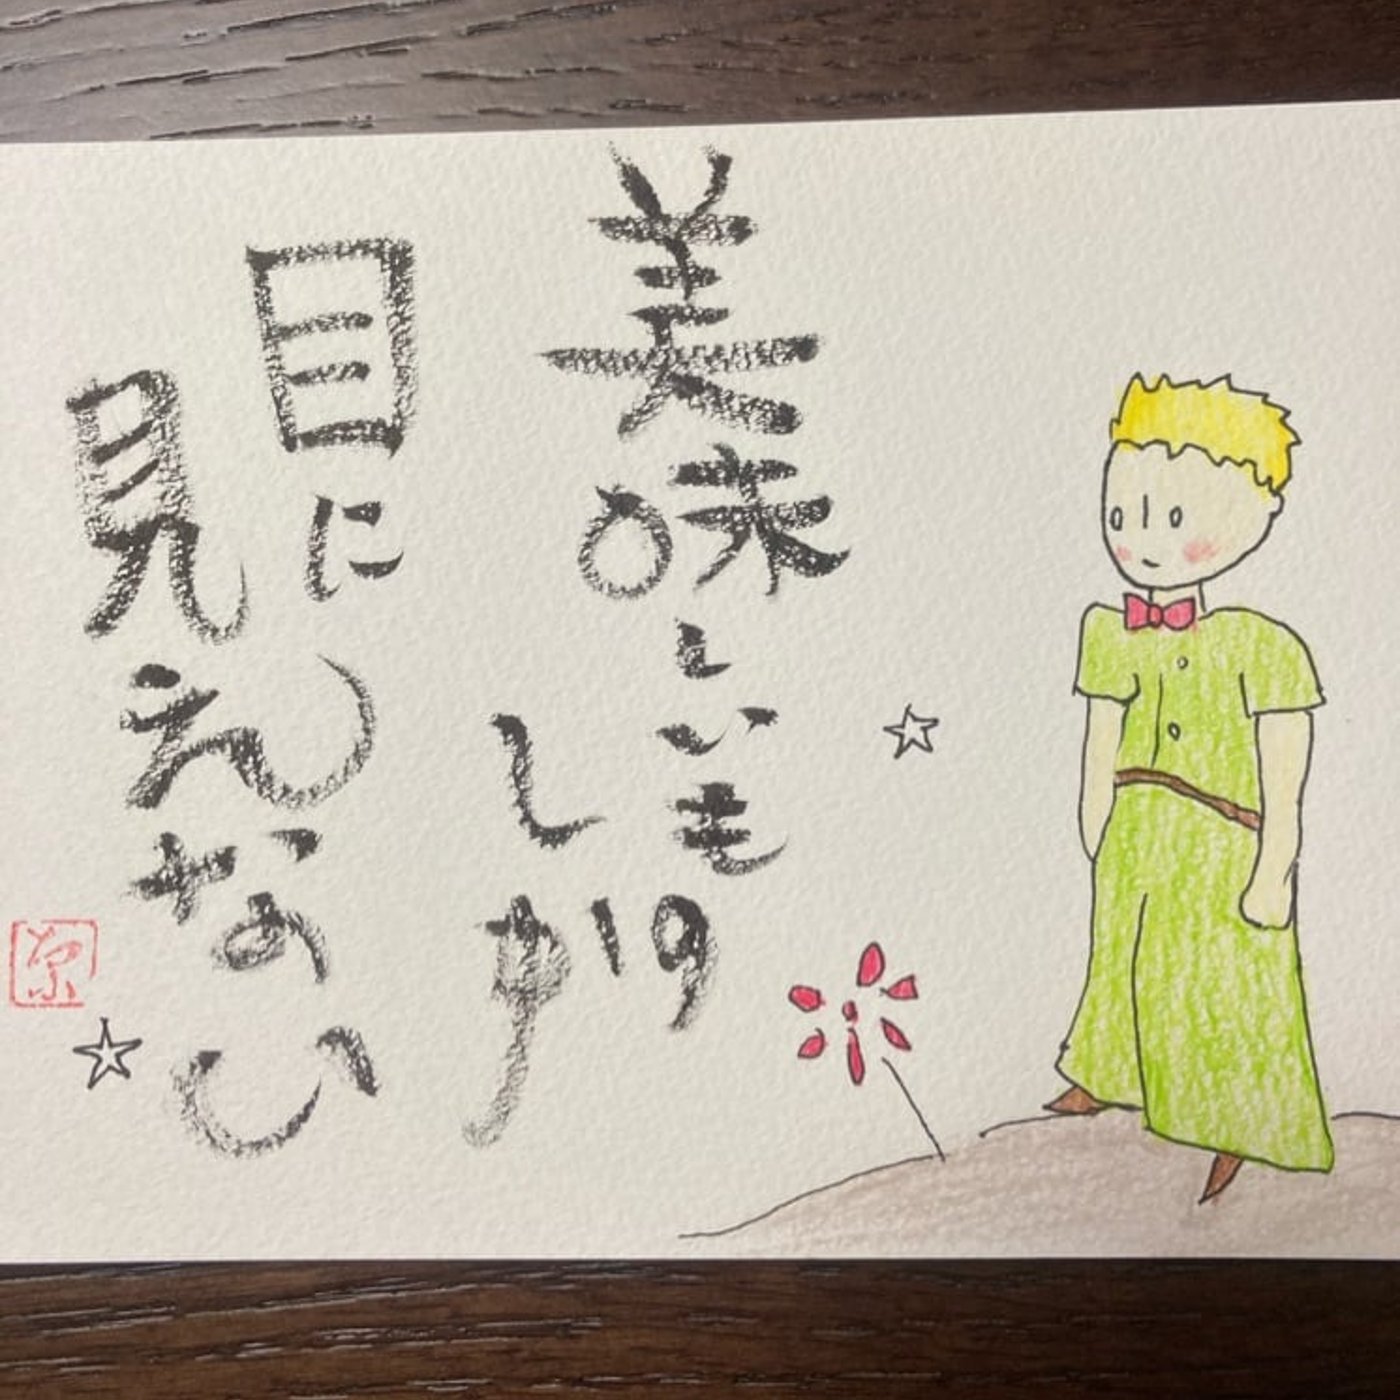 美味しいもの
しか
目に
見えない